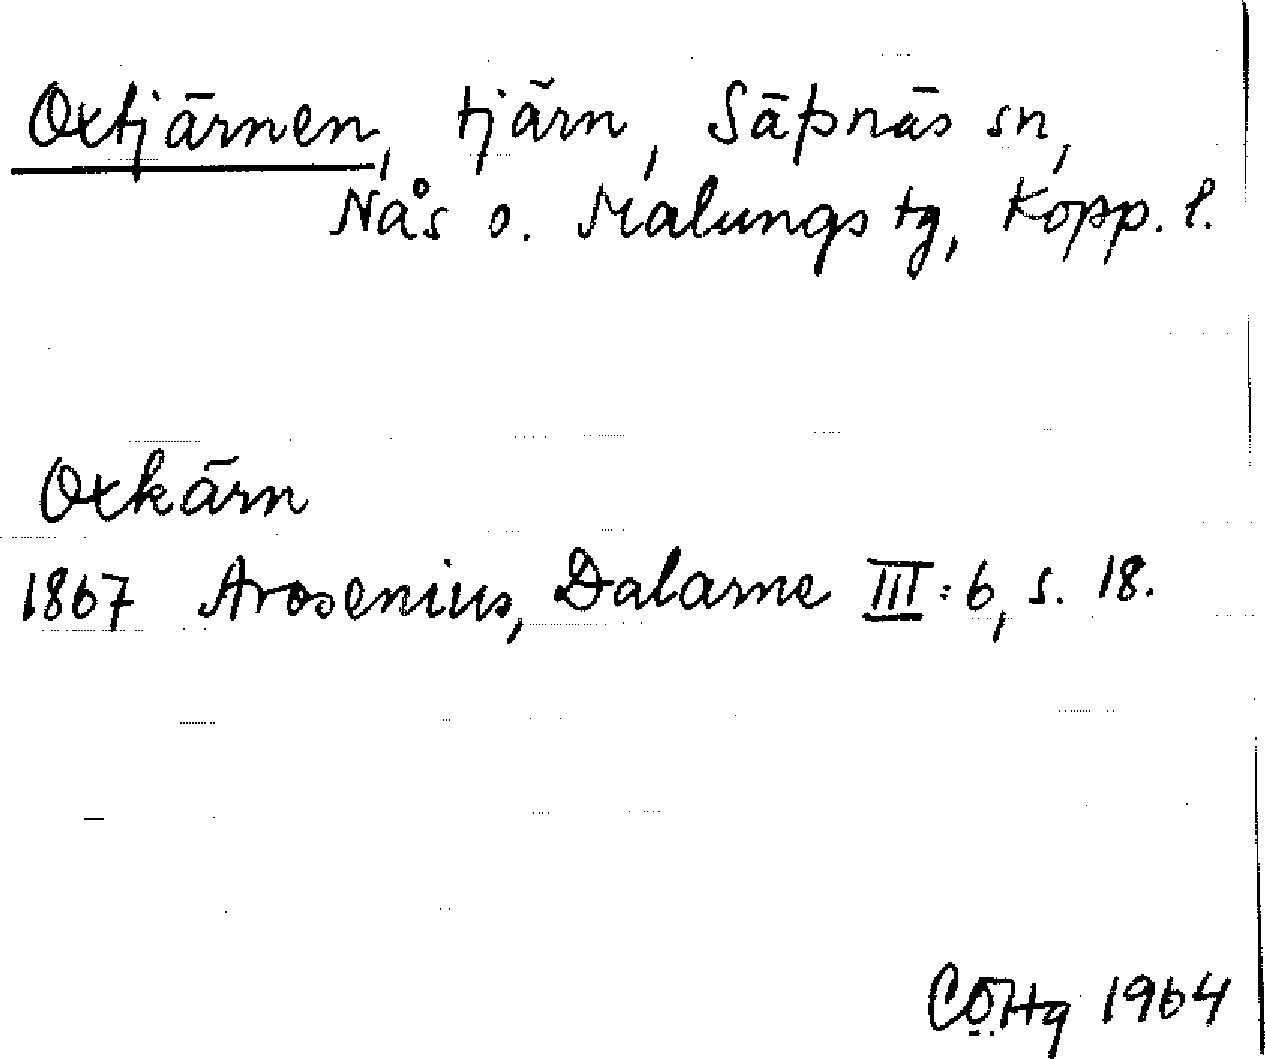 Oxtjärnen, tjärn, Säfsnäs sn,
Nås o. Malungs tg, Kopp. l.
Oxkärn
1867 Arosenius, Dalarne III:6, s. 18.
CÖHg 1964